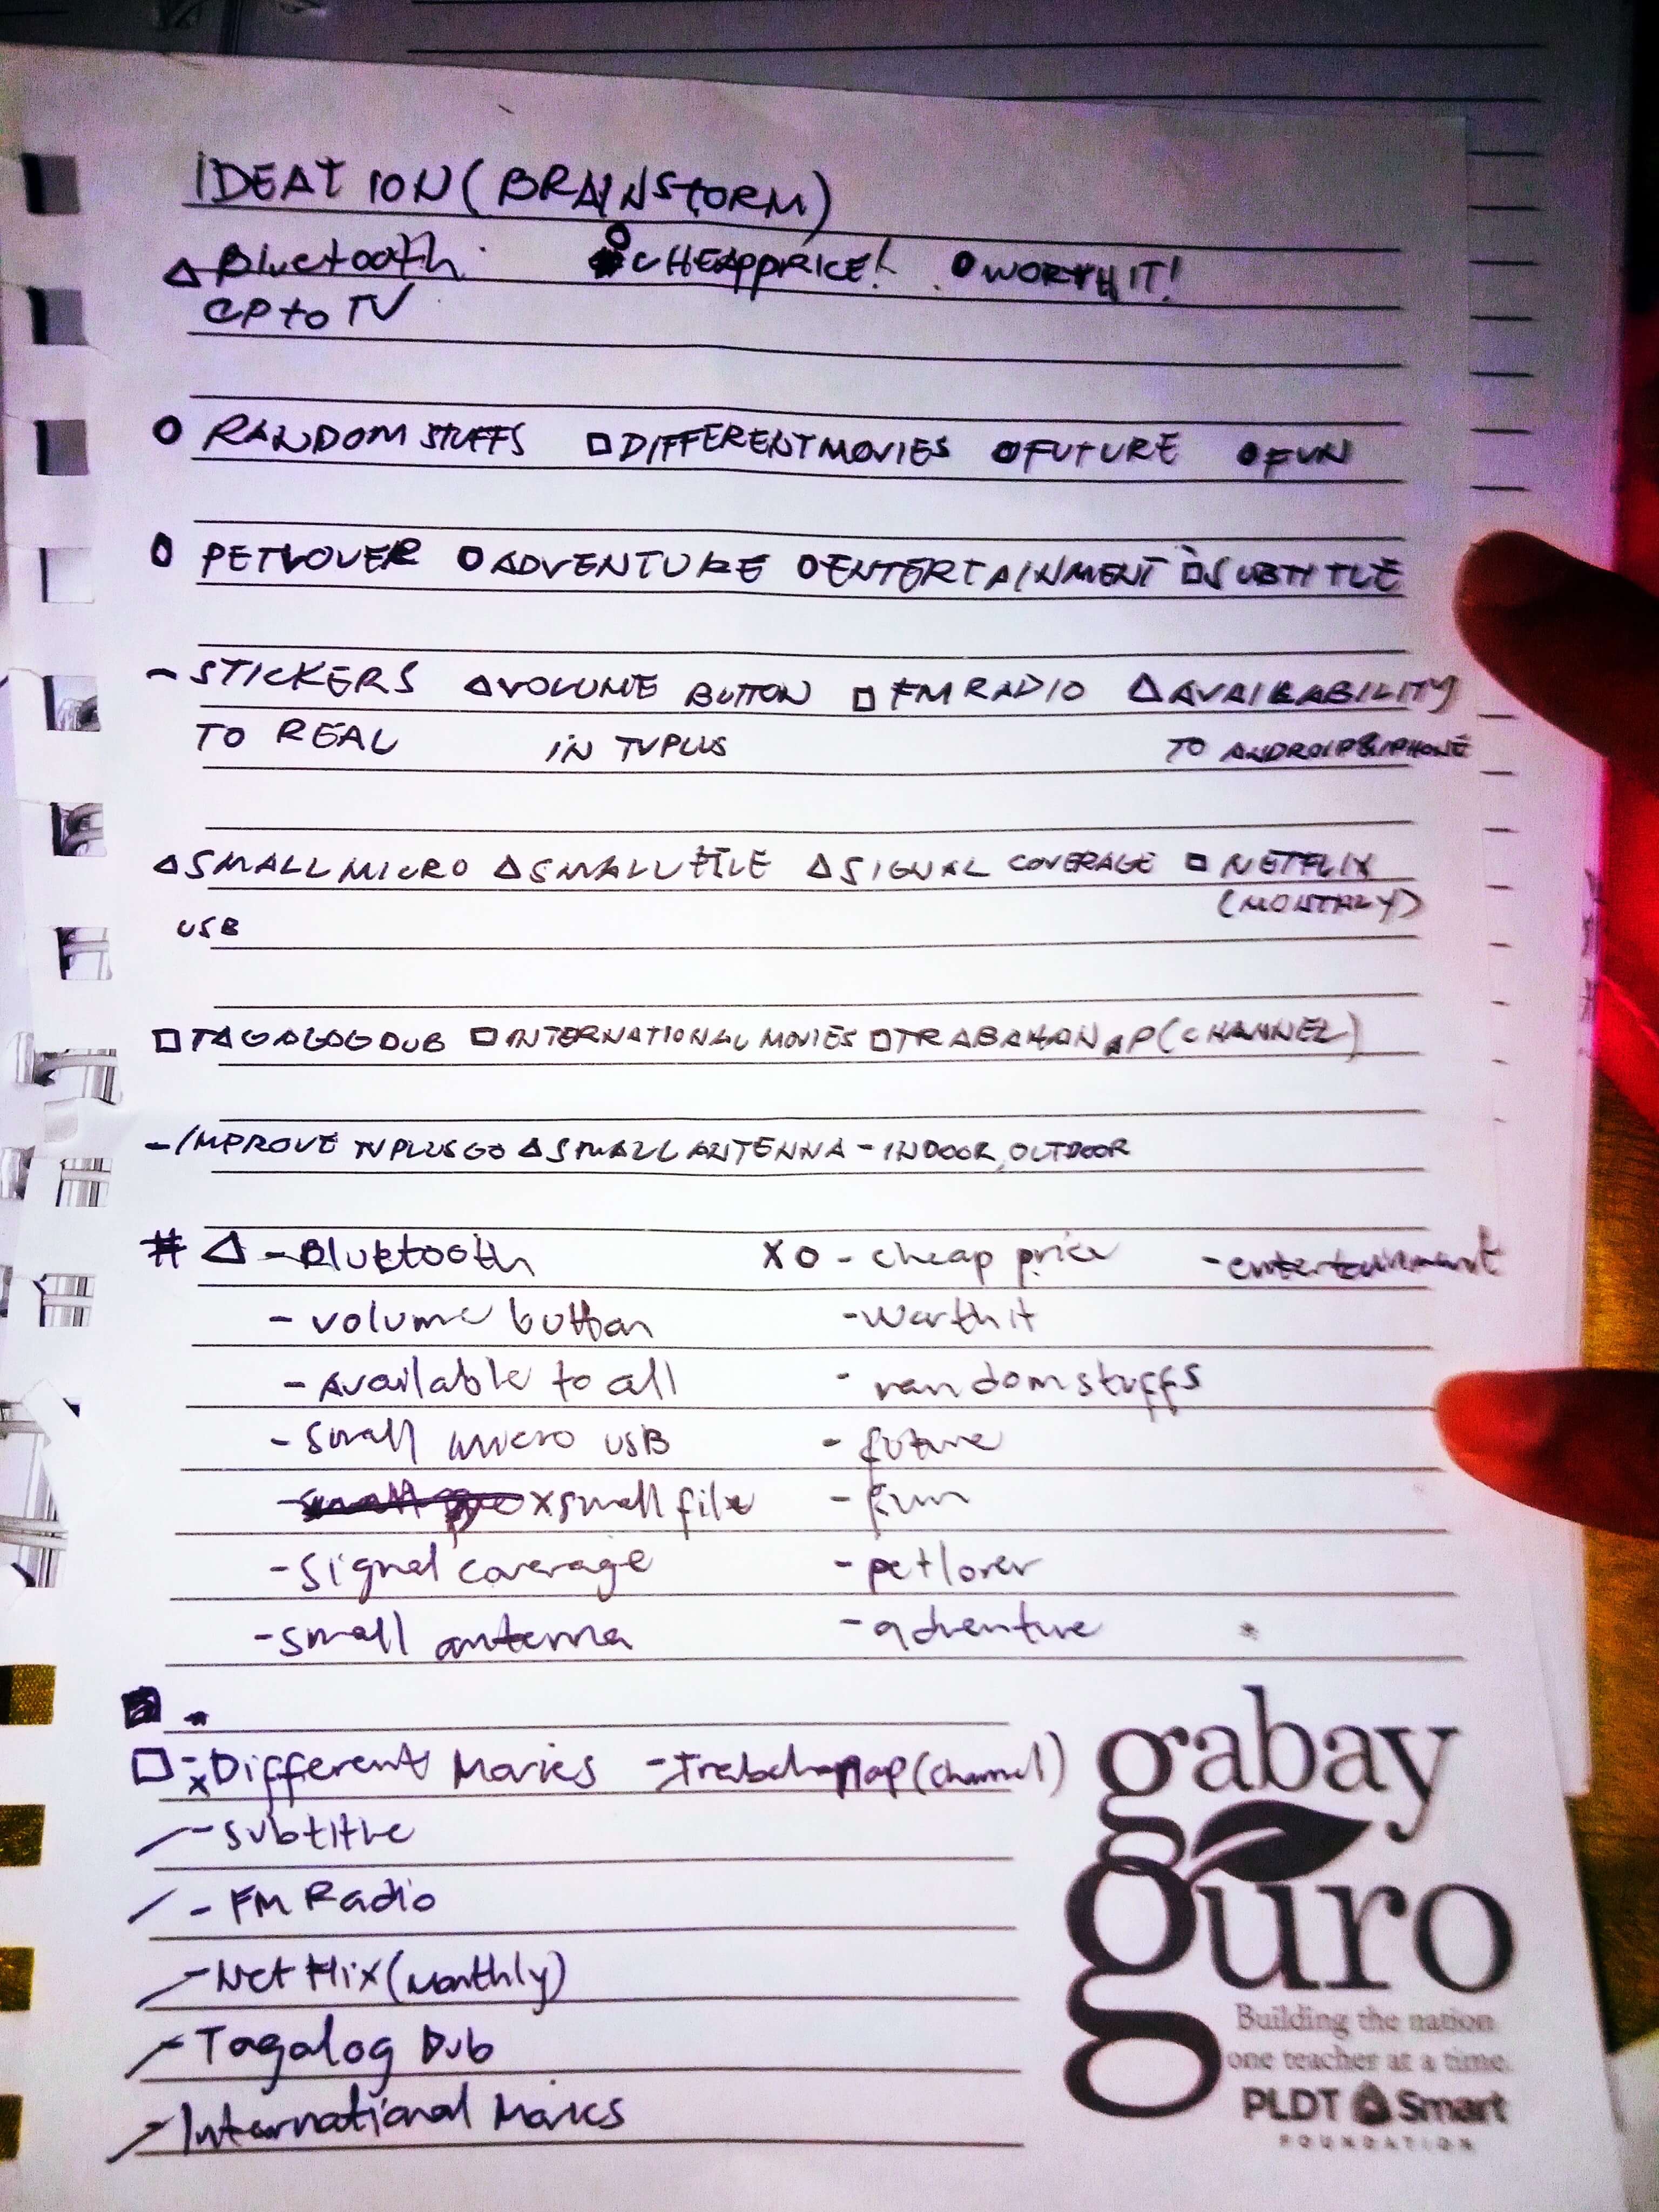 IDEATION (BRAINSTORM)
△ Bluetooth ○ CHEAP PRICE! ○ WORTH IT!
CP to TV
○ RANDOM STUFFS □ DIFFERENT MOVIES ○ FUTURE ○ FUN
○ PETLOVER ○ ADVENTURE ○ ENTERTAINMENT □ SUBTITLE
- STICKERS △ VOLUME BUTTON □ FM RADIO △ AVAILABILITY
TO REAL IN TVPLUS TO ANDROID & IPHONE
△ SMALL MICRO △ SMALL FILE △ SIGNAL COVERAGE □ NETFLIX
(MONTHLY)
USB
□ TAGALOG DUB □ INTERNATIONAL MOVIES □ TRABAHANAP (CHANNEL)
- IMPROVE TVPLUS GO △ SMALL ANTENNA - INDOOR, OUTDOOR
# △ - Bluetooth X O - cheap price - entertainment
- volume button - Worth it
- Available to all - random stuffs
- Small micro USB - future
x small file - fun
- Signal coverage - petlover
- small antenna - adventure
□ - x Different Movies - Trabahanap (channel)
- Subtitle
- FM Radio
- Netflix (Monthly)
- Tagalog Dub
- International Movies
gabay
guro
Building the nation
one teacher at a time.
PLDT Smart
FOUNDATION